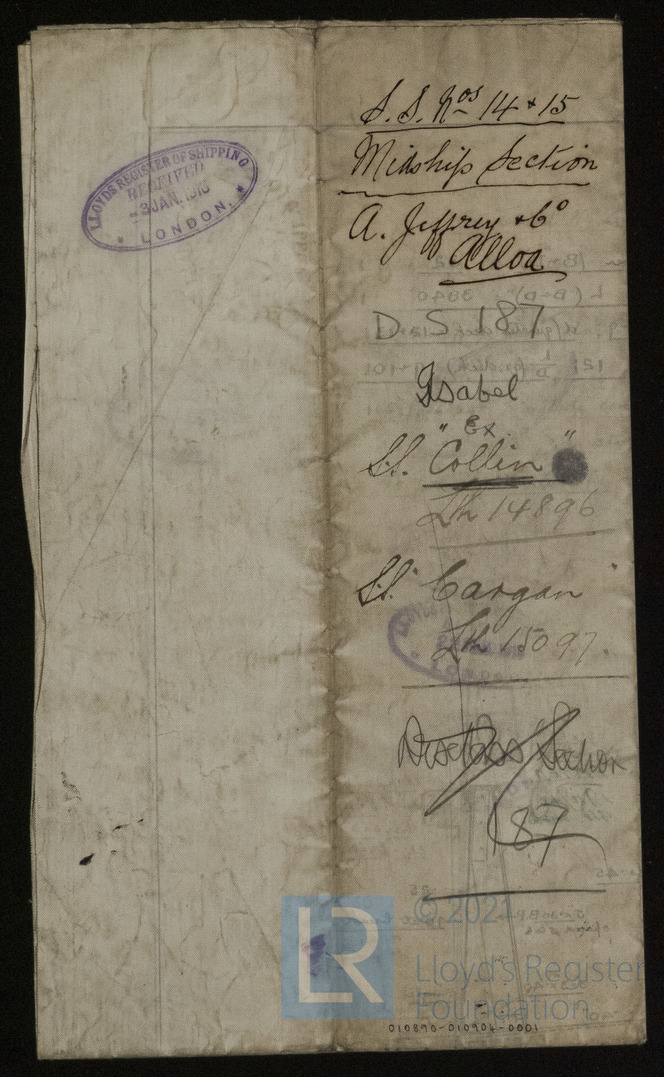 S.S. Nos 14 & 15
Midship Section
A. Jeffrey & Co
Alloa
D S 187
Isabel
"Ex"
S.S. Collin
Lth 14896
S.S. "Cargan"
Lth 15097.
Section
187
LLOYDS REGISTER OF SHIPPING
RECEIVED
-3 JAN. 1910
LONDON.
LR
© 2021
Lloyd's Register
Foundation
010890-010904-0001